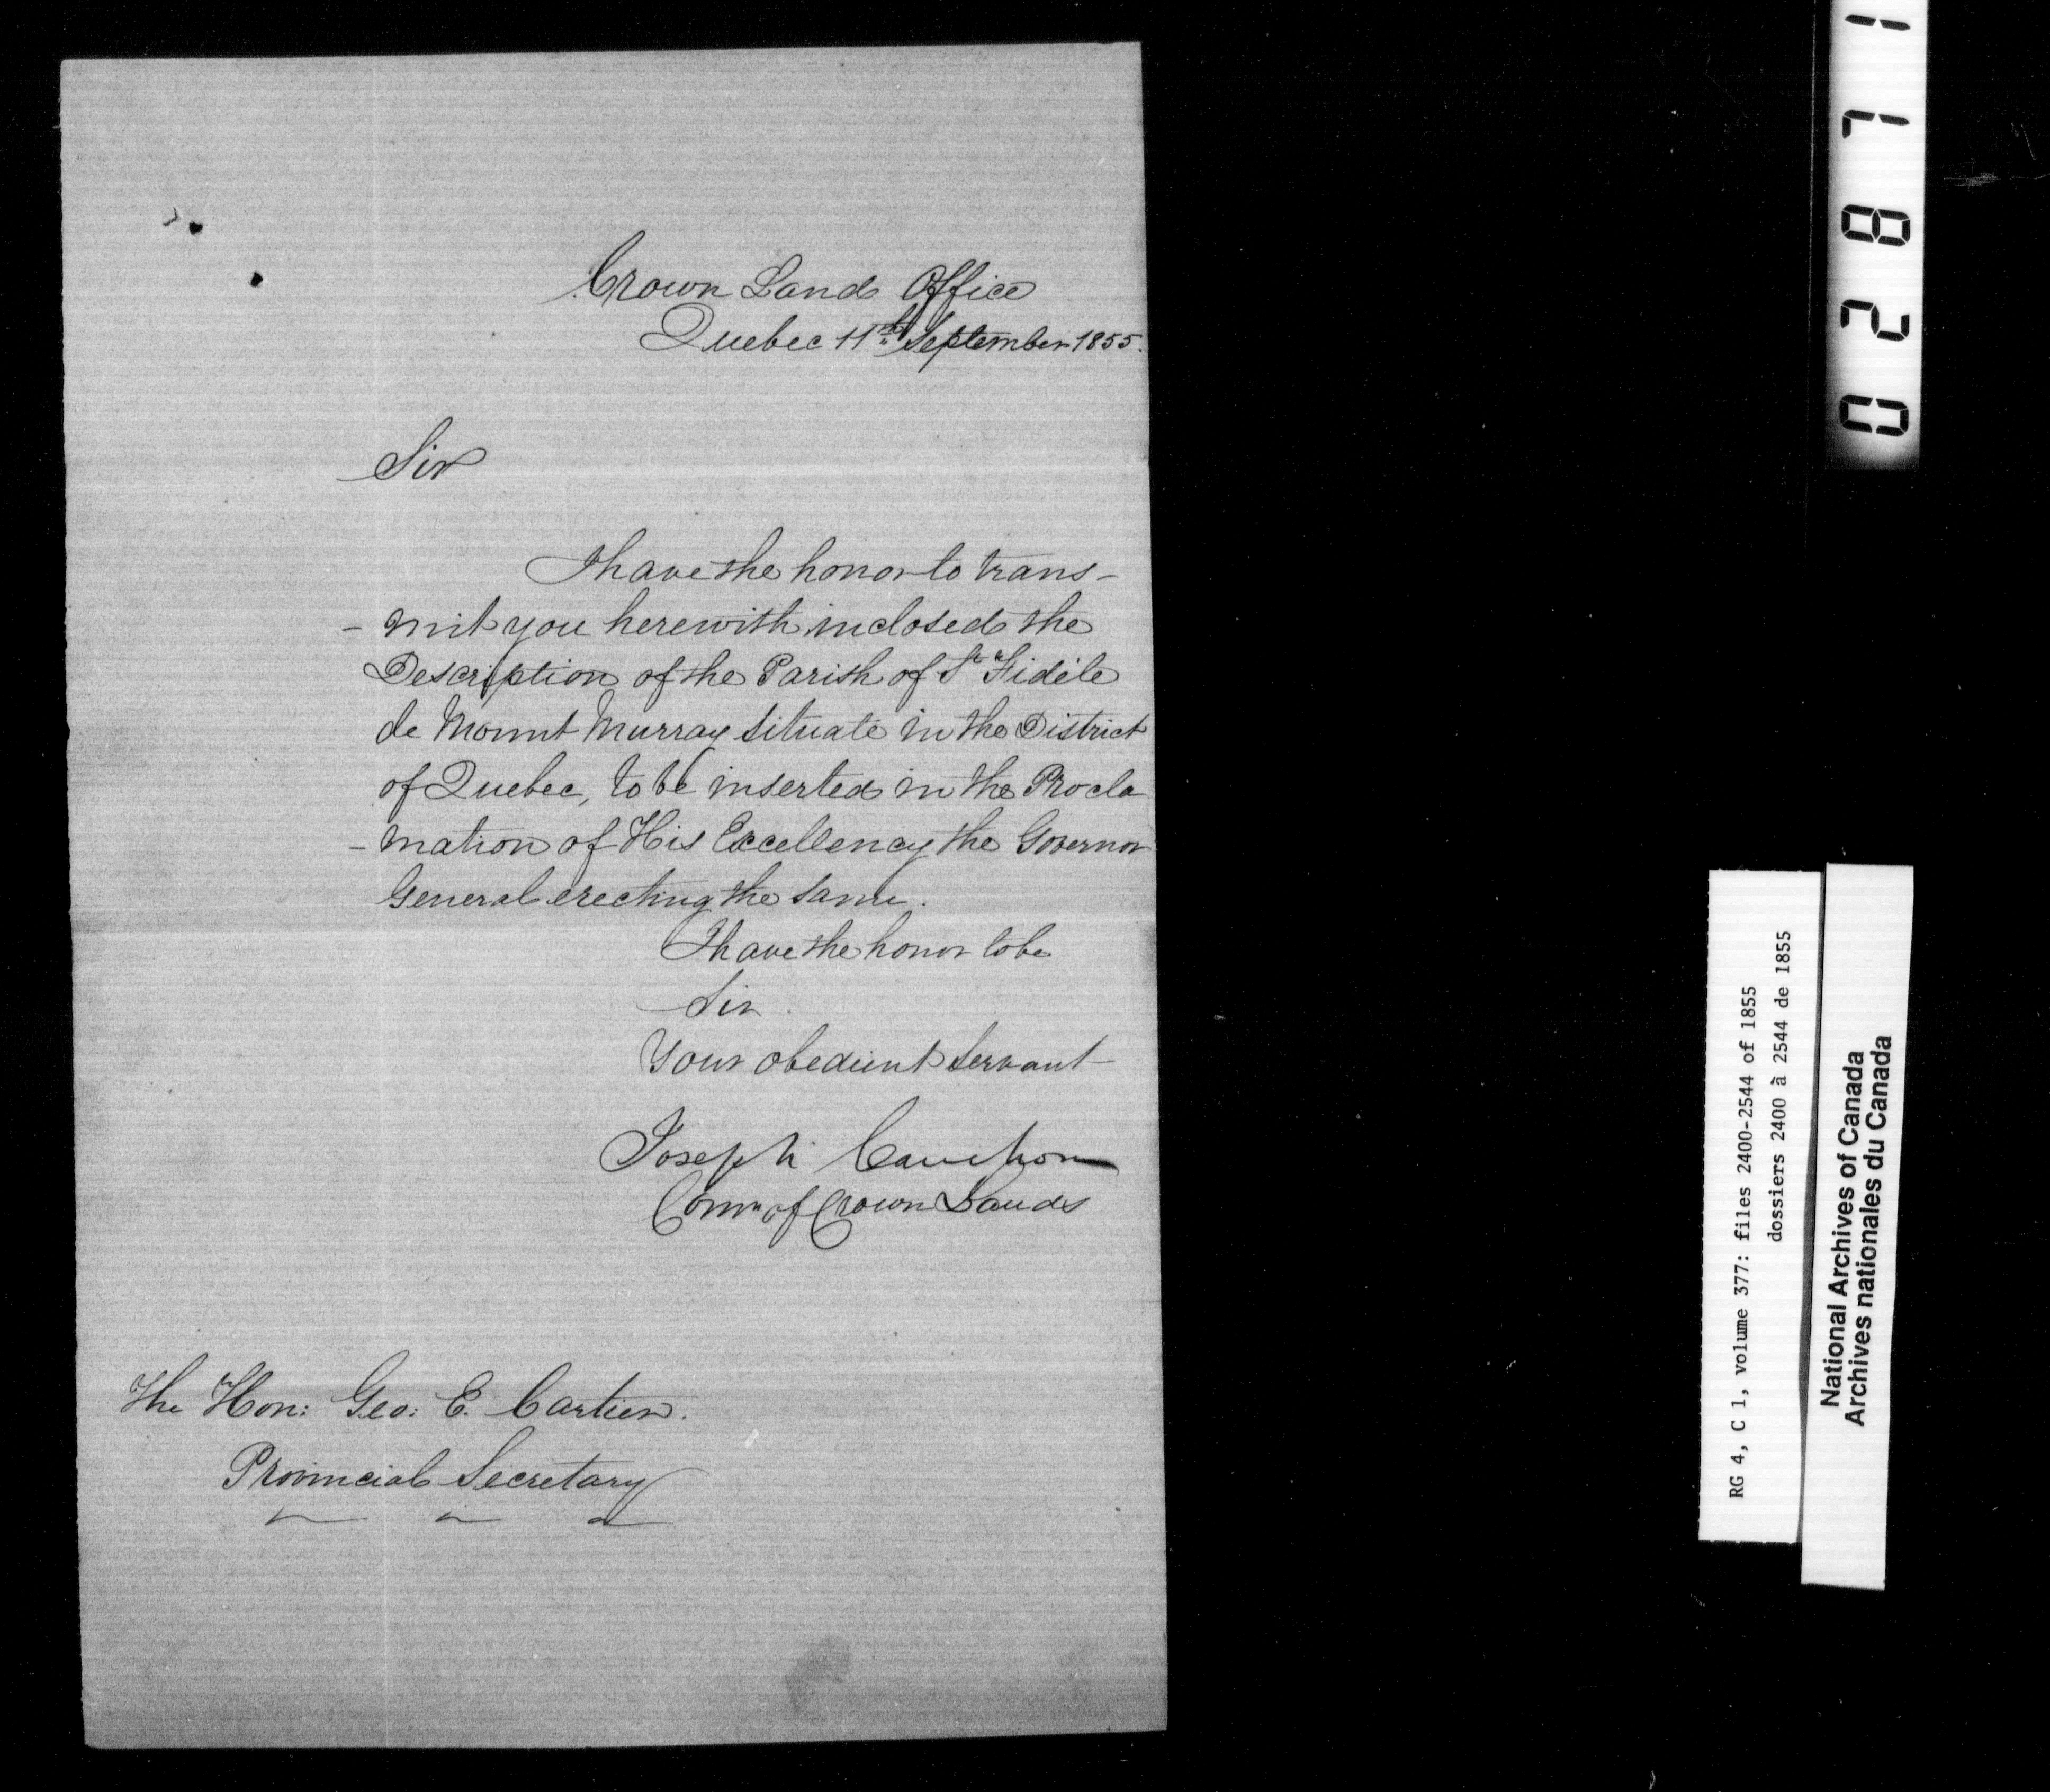 Crown Land Office
Quebec 11th September 1855.
Sir
I have the honor to trans-
-mit you herewith inclosed the
Description of the Parish of St Fidèle
de Mount Murray situate in the District
of Quebec, to be inserted in the Procla
-mation of His Excellency the Governor
General erecting the same.
I have the honor to be
Sir
Your obedient servant
Joseph Cauchon
Comr of Crown Lands
The Hon: Geo: E. Cartier.
Provincial Secretary
02871
RG 4, C 1, volume 377: files 2400-2544 of 1855
dossiers 2400 à 2544 de 1855
National Archives of Canada
Archives nationales du Canada